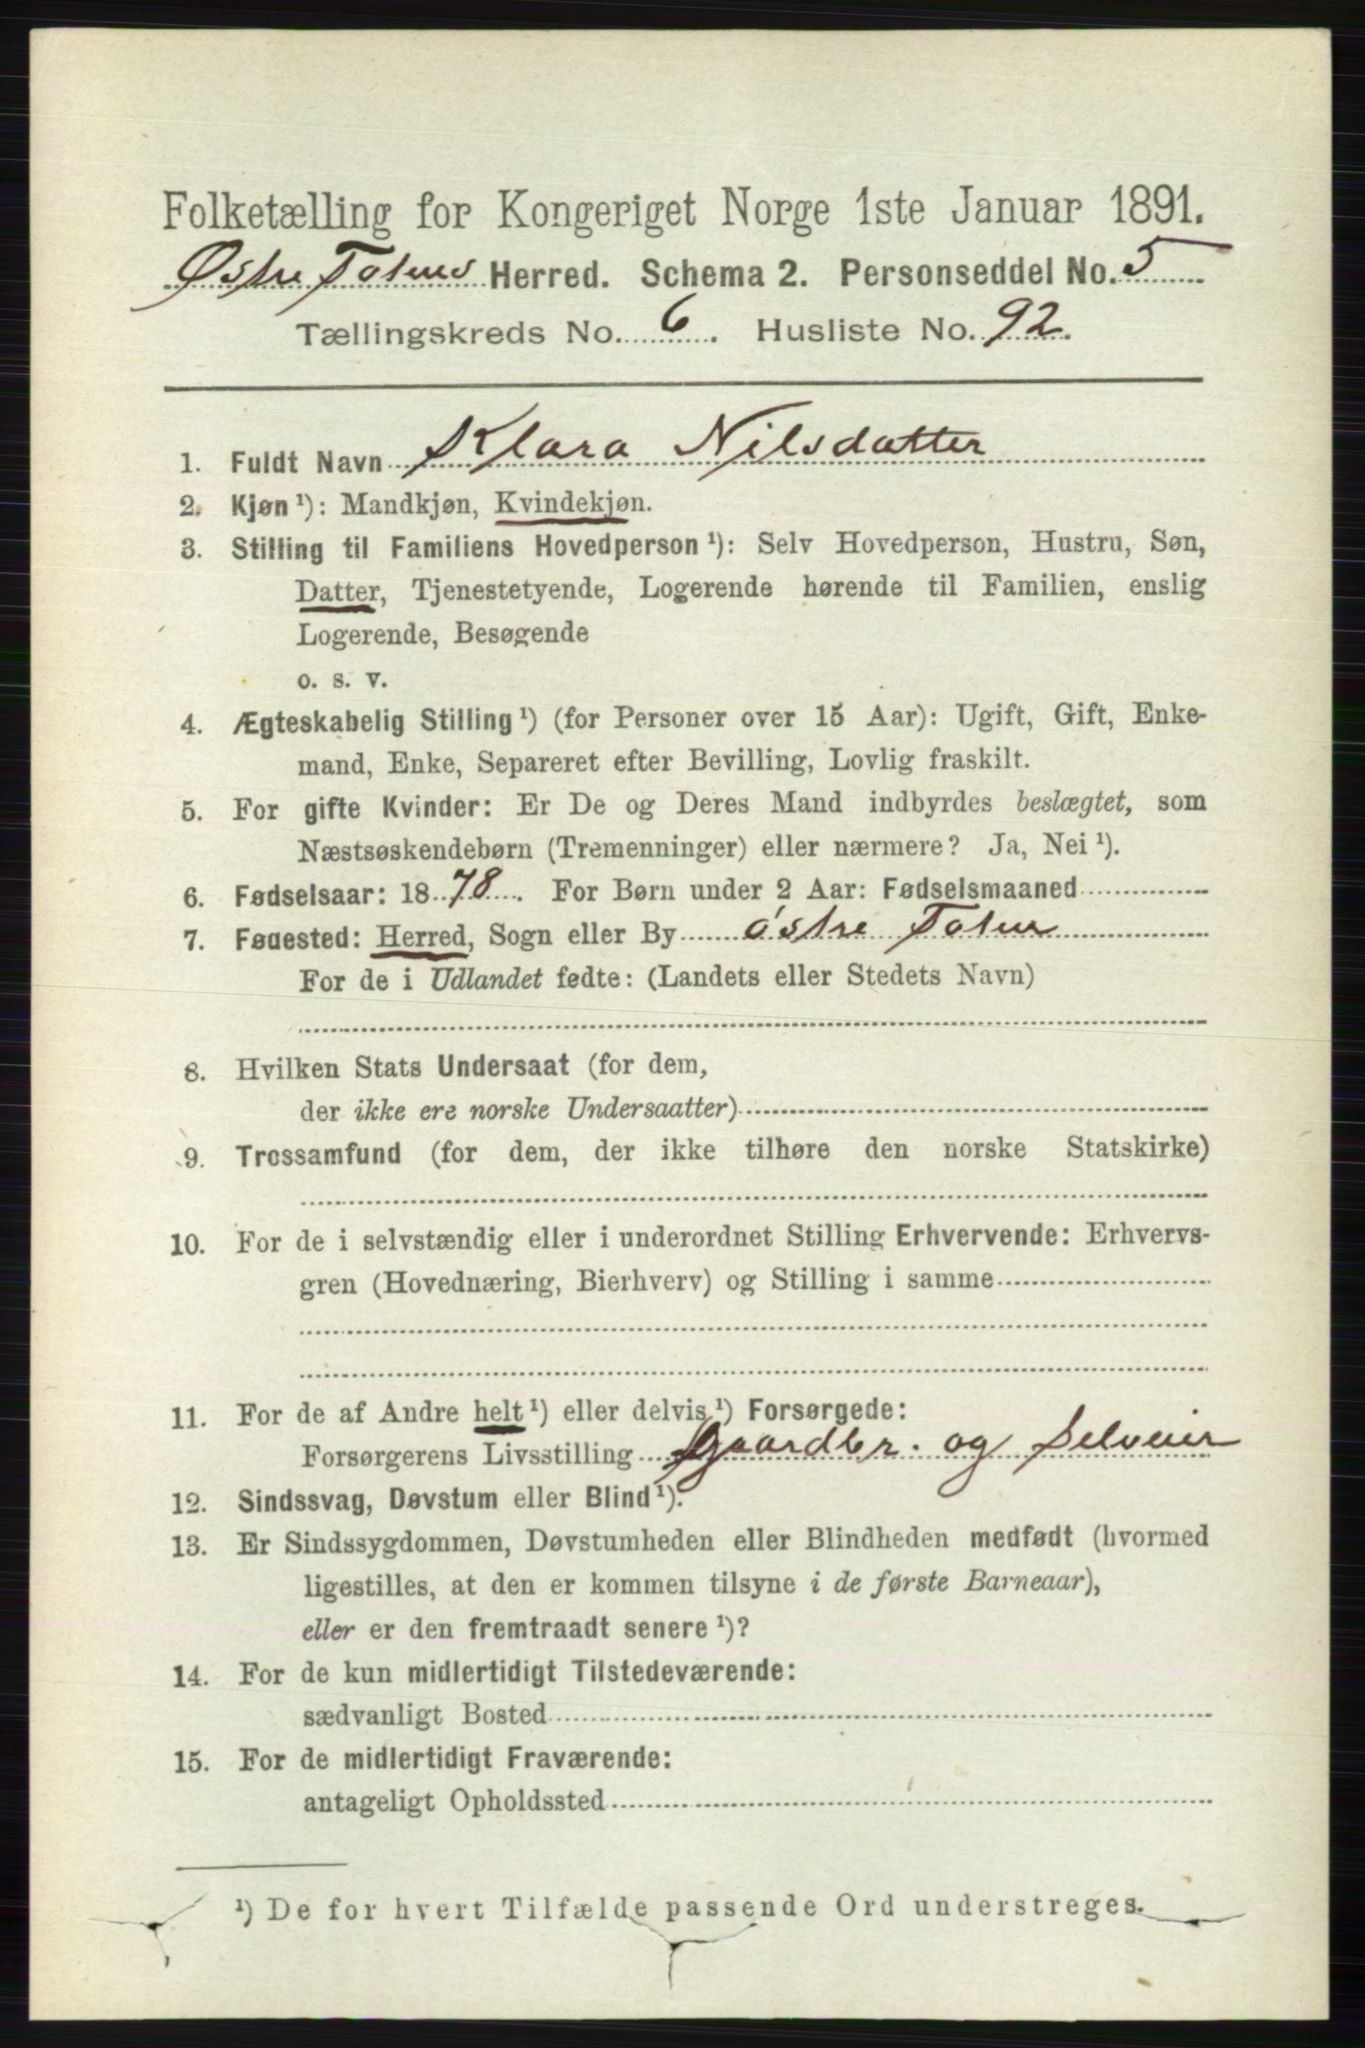 Folketælling for Kongeriget Norge 1ste Januar 1891.
Østre Totens Herred. Schema 2. Personseddel No. 5
Tællingskreds No. 6. Husliste No. 92.
1. Fuldt Navn Klara Nilsdatter
2. Kjøn ¹): Mandkjøn, Kvindekjøn.
3. Stilling til Familiens Hovedperson ¹): Selv Hovedperson, Hustru, Søn,
Datter, Tjenestetyende, Logerende hørende til Familien, enslig
Logerende, Besøgende
o. s. v.
4. Ægteskabelig Stilling ¹) (for Personer over 15 Aar): Ugift, Gift, Enke-
mand, Enke, Separeret efter Bevilling, Lovlig fraskilt.
5. For gifte Kvinder: Er De og Deres Mand indbyrdes beslægtet, som
Næstsøskendebørn (Tremenninger) eller nærmere? Ja, Nei ¹).
6. Fødselsaar: 1878. For Børn under 2 Aar: Fødselsmaaned
7. Fødested: Herred, Sogn eller By østre Toten
For de i Udlandet fødte: (Landets eller Stedets Navn)
8. Hvilken Stats Undersaat (for dem,
der ikke ere norske Undersaatter)
9. Trossamfund (for dem, der ikke tilhøre den norske Statskirke)
10. For de i selvstændig eller i underordnet Stilling Erhvervende: Erhvervs-
gren (Hovednæring, Bierhverv) og Stilling i samme
11. For de af Andre helt ¹) eller delvis ¹) Forsørgede:
Forsørgerens Livsstilling Gaardbr. og Selveier
12. Sindssvag, Døvstum eller Blind ¹).
13. Er Sindssygdommen, Døvstumheden eller Blindheden medfødt (hvormed
ligestilles, at den er kommen tilsyne i de første Barneaar),
eller er den fremtraadt senere ¹)?
14. For de kun midlertidigt Tilstedeværende:
sædvanligt Bosted
15. For de midlertidigt Fraværende:
antageligt Opholdssted
¹) De for hvert Tilfælde passende Ord understreges.